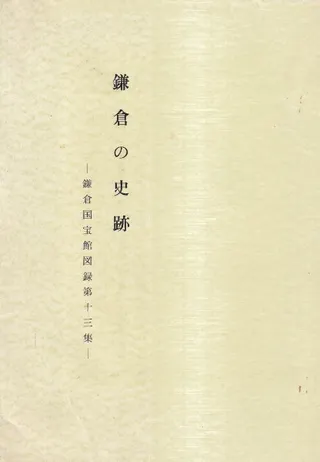 鎌倉の史跡
―鎌倉国宝館図録第十三集―